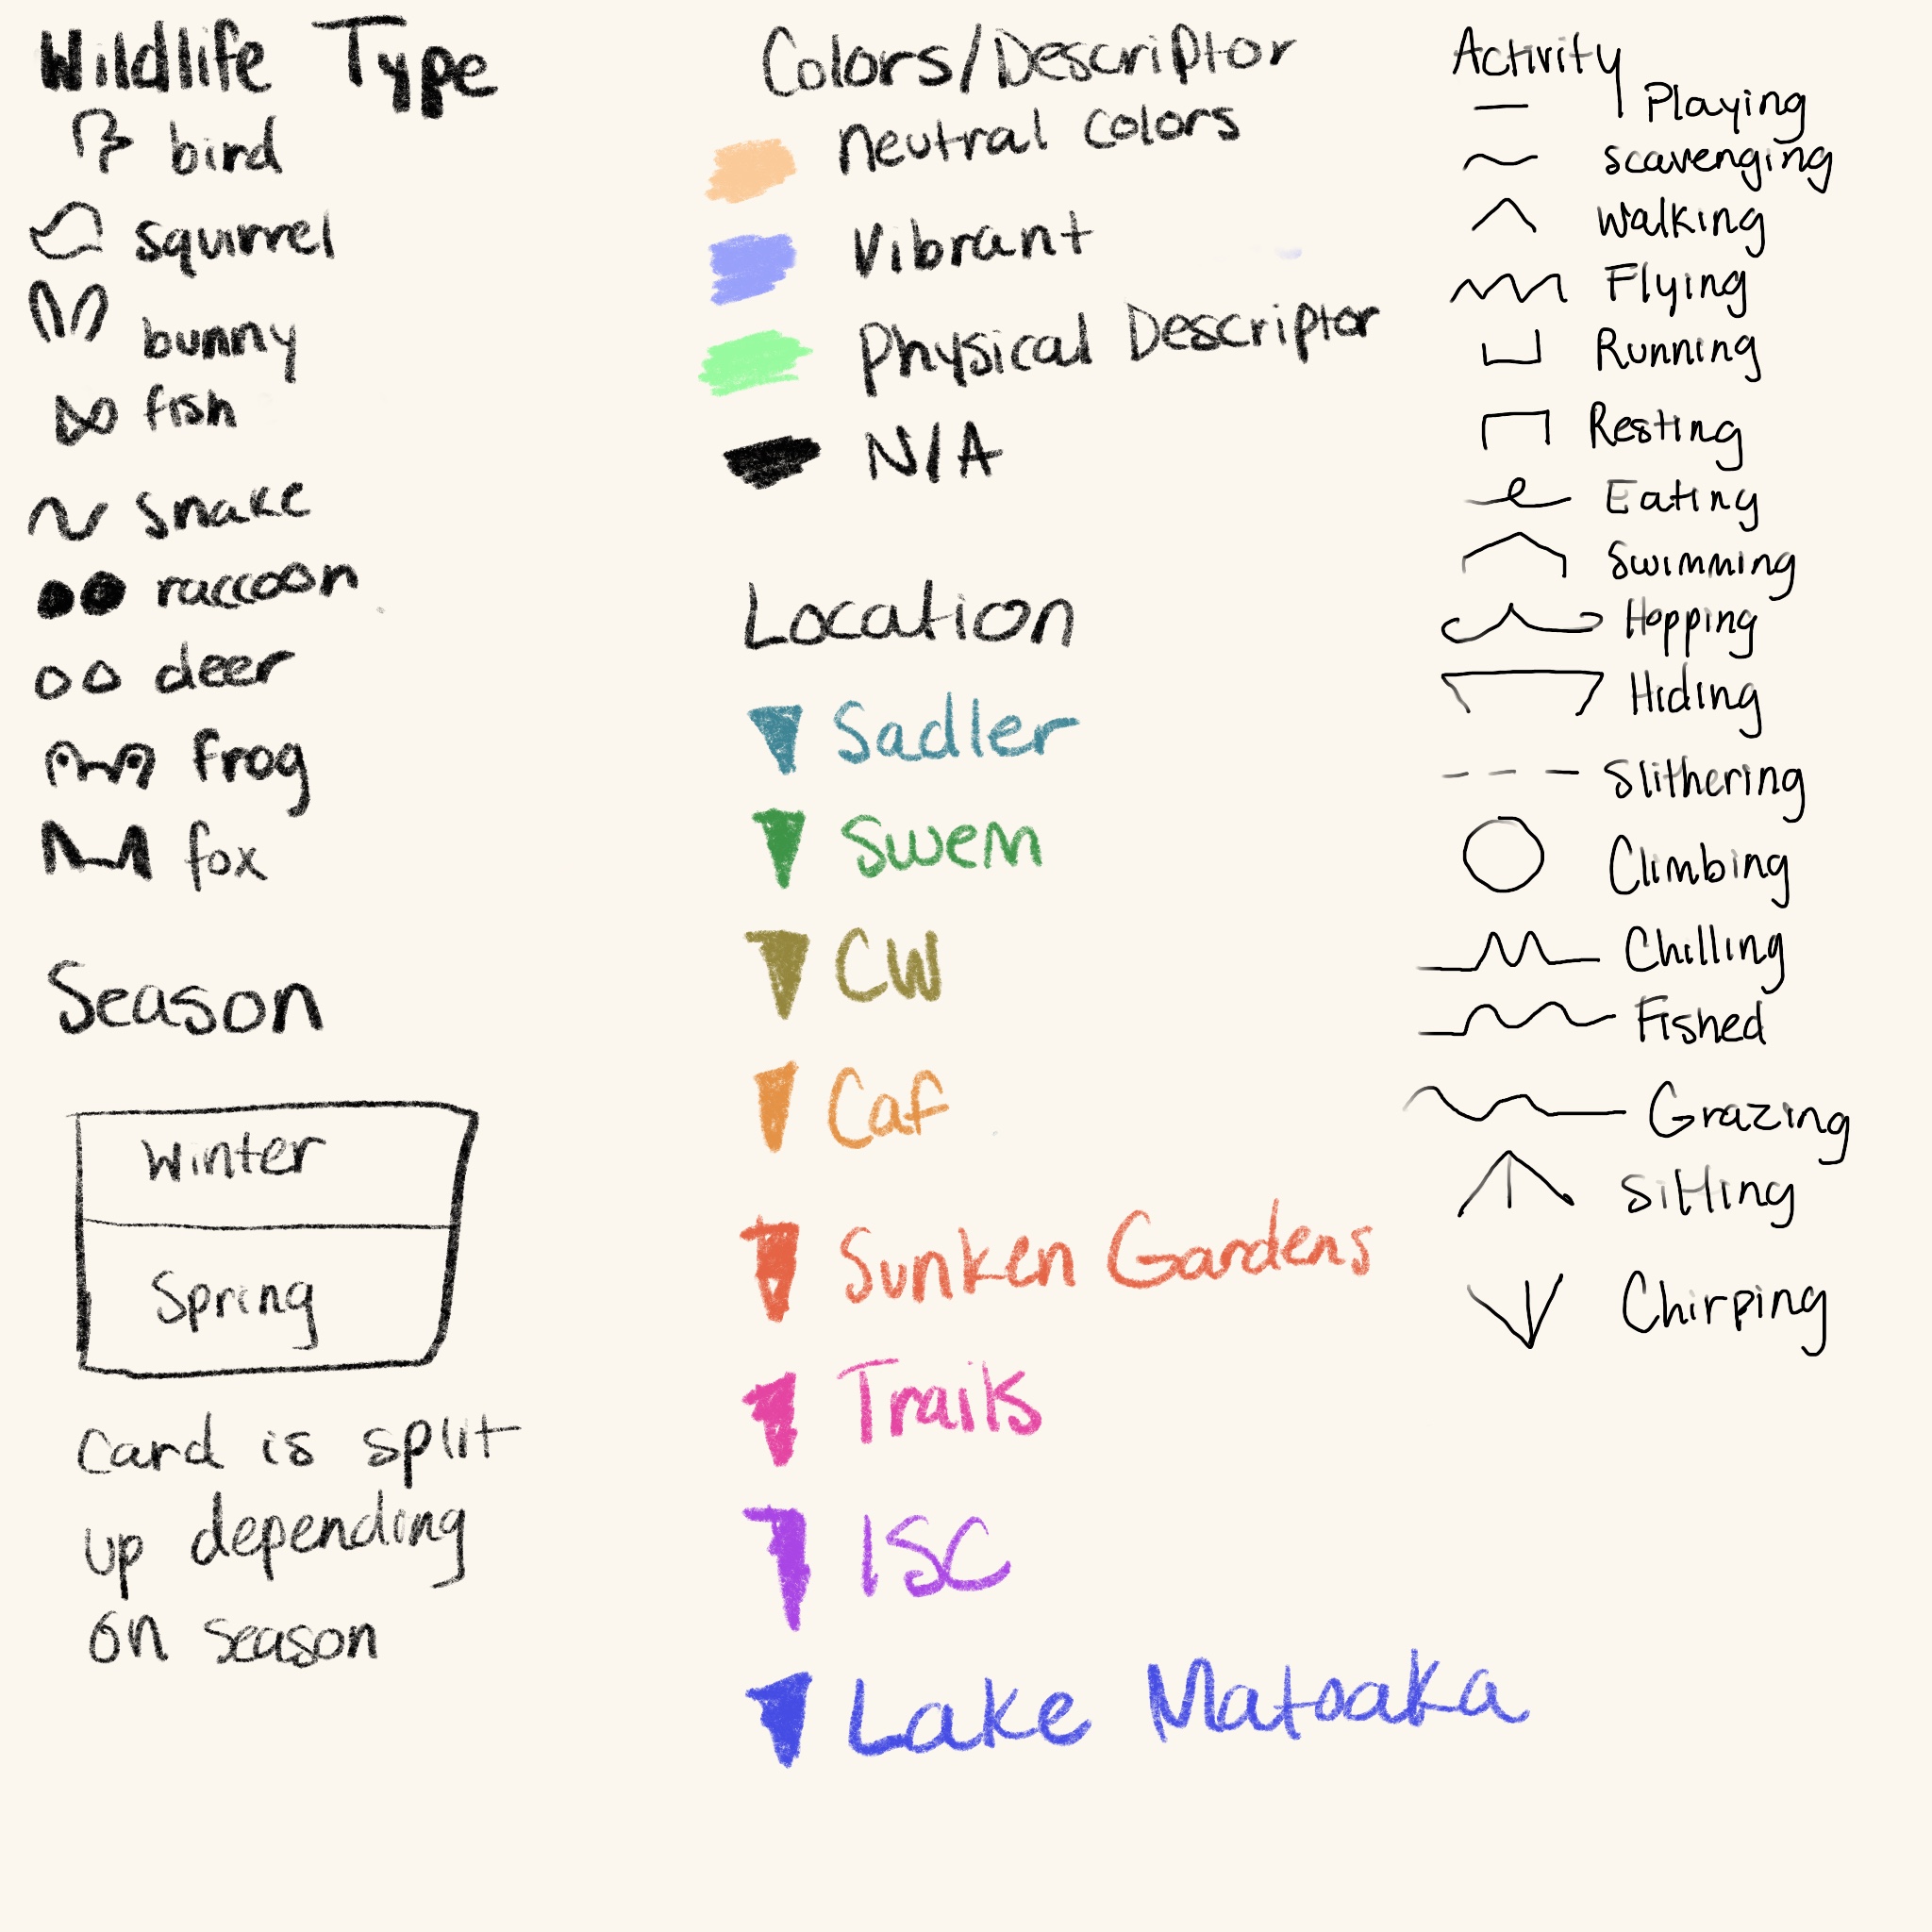 Wildlife Type
bird
squirrel
bunny
fish
snake
raccoon
deer
frog
fox
Season
Winter
Spring
Card is split
up depending
on season
Colors/Descriptor
neutral colors
Vibrant
Physical Descriptor
N/A
Location
Sadler
Swem
CW
Caf
Sunken Gardens
Trails
ISC
Lake Matoaka
Activity
Playing
scavenging
Walking
Flying
Running
Resting
Eating
Swimming
Hopping
Hiding
Slithering
Climbing
Chilling
Fished
Grazing
Sitting
Chirping